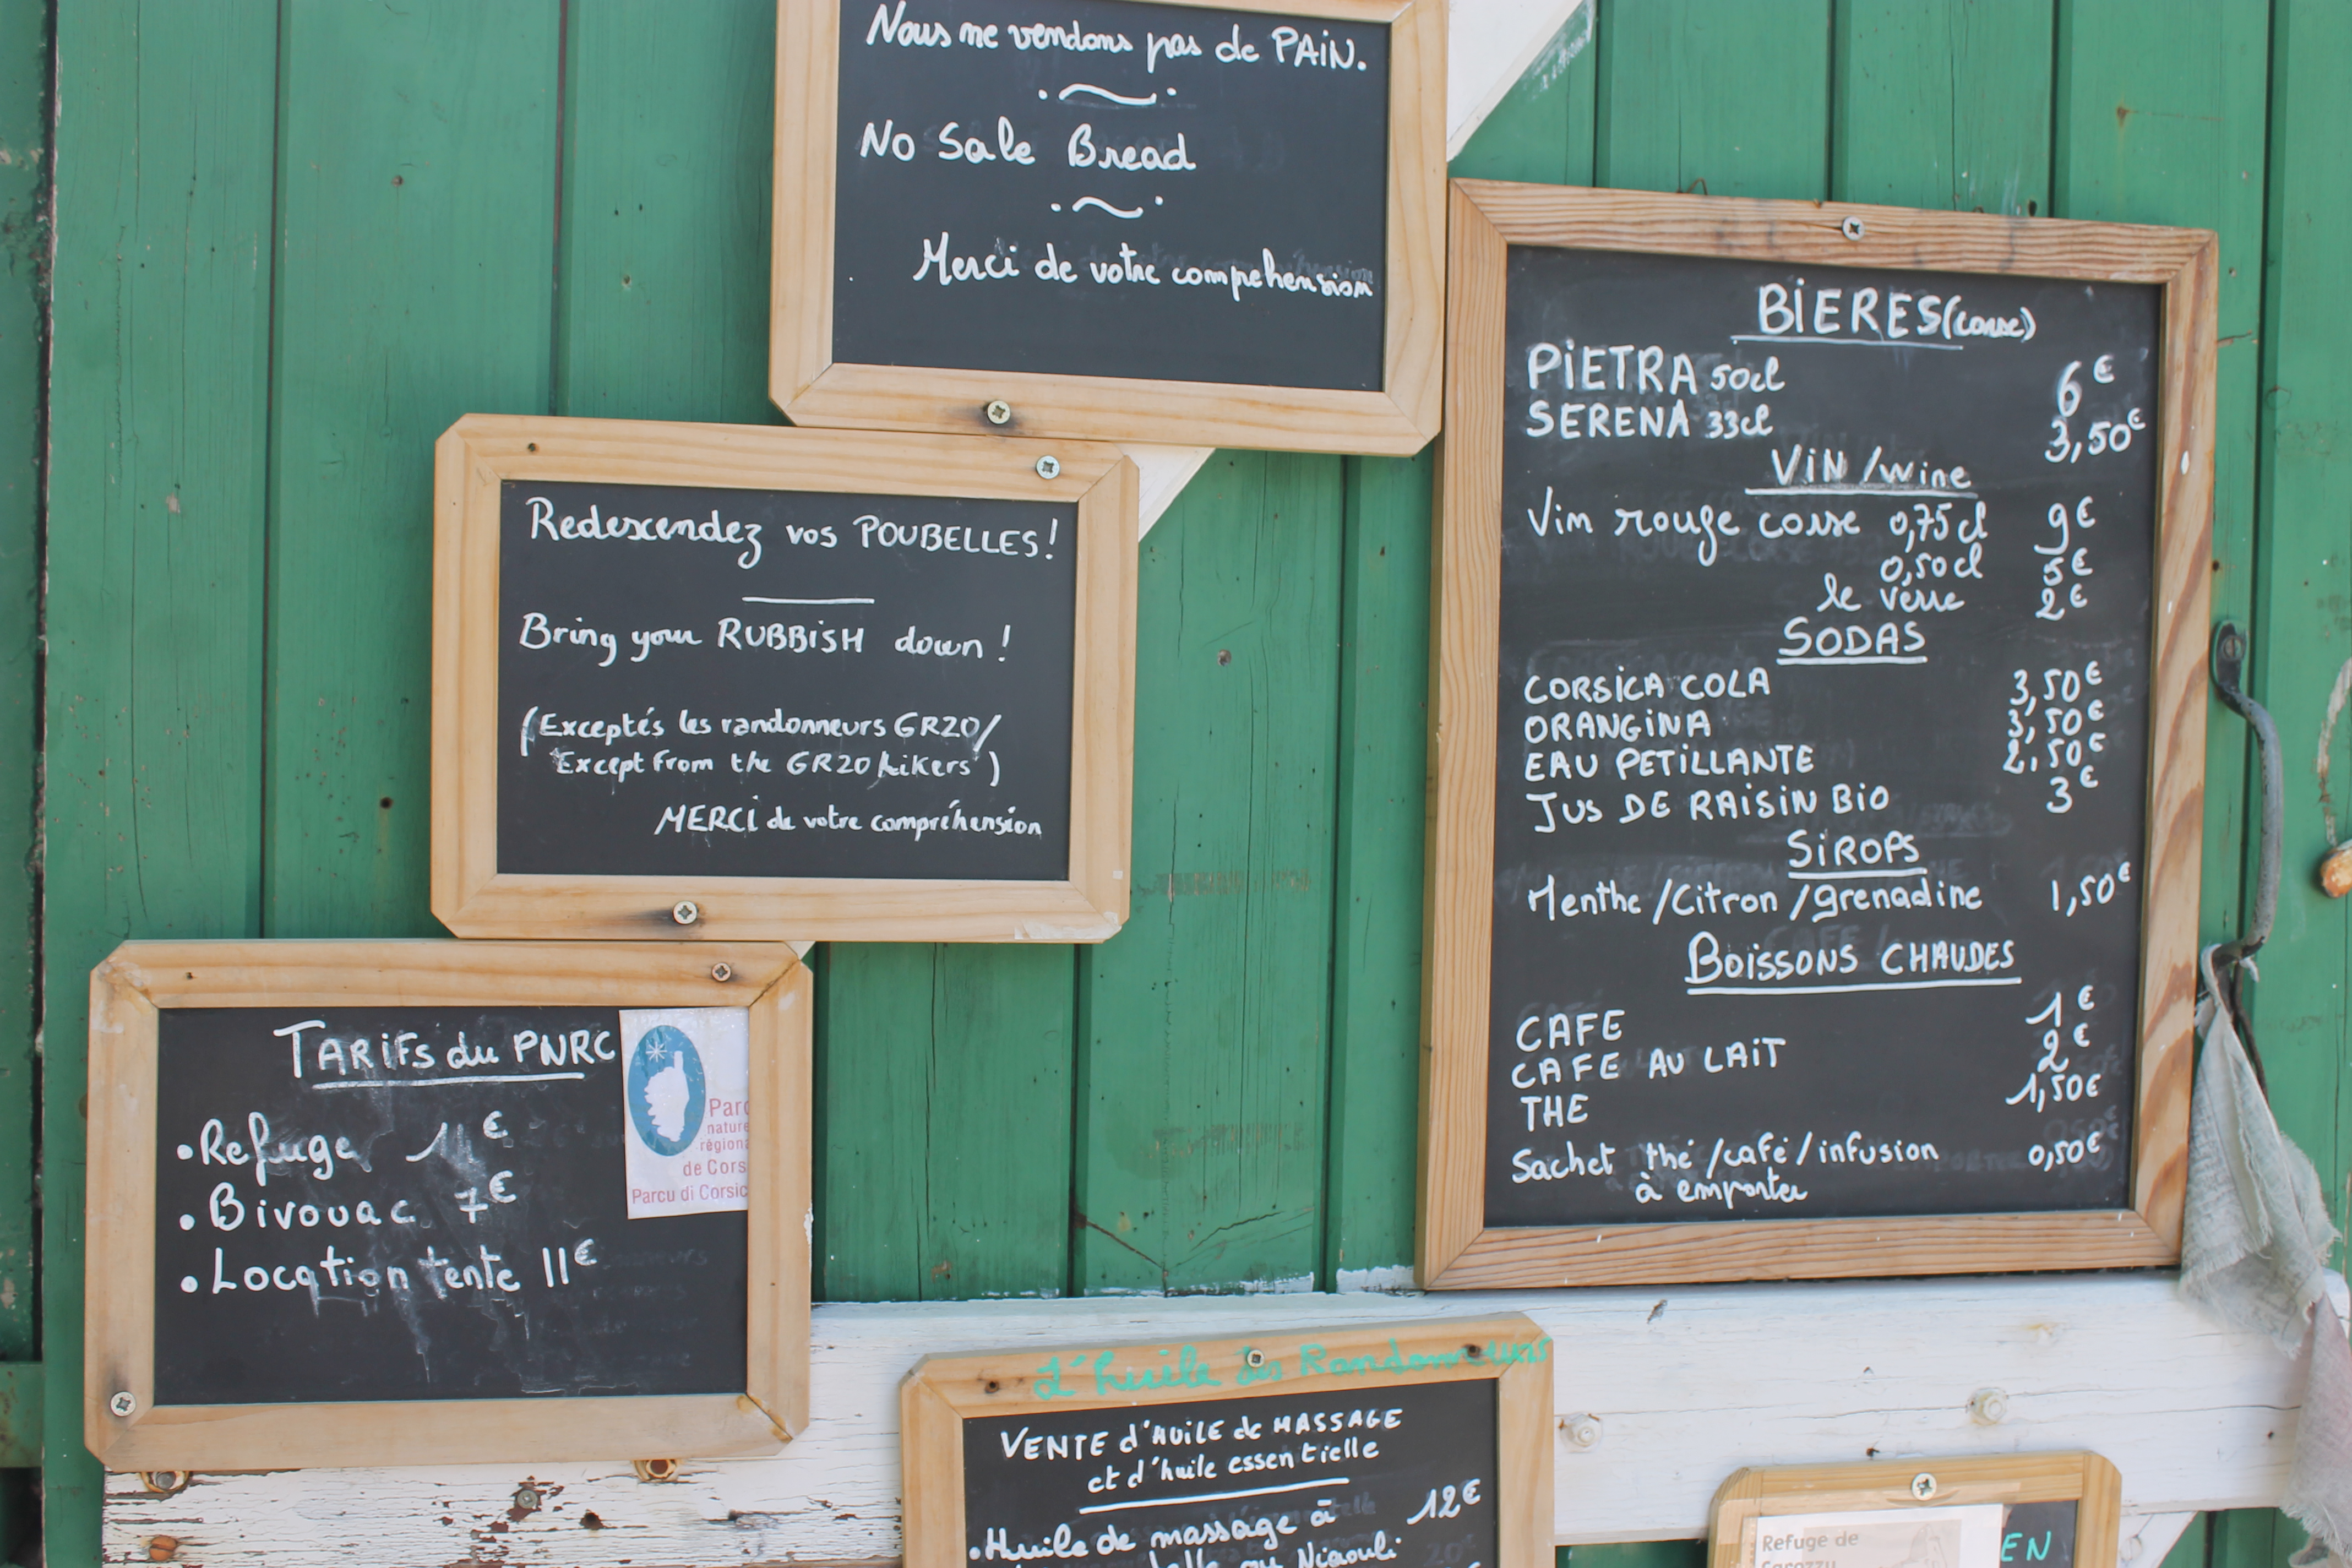 Nous ne vendons pas de PAIN.
No Sale Bread
Merci de votre compréhension
Redescendez vos POUBELLES!
Bring your RUBBISH down!
(Exceptés les randonneurs GR20/
Except from the GR20 hikers)
MERCI de votre compréhension
TARIFS du PNRC
•Refuge 11€
•Bivouac 7€
•Location tente 11€
Parc
nature
régiona
de Cors
Parcu di Corsic
BIERES (corse)
PIETRA 50cl 6€
SERENA 33cl 3,50€
VIN/wine
Vin rouge corse 0,75cl 9€
0,50cl 5€
le verre 2€
SODAS
CORSICA COLA 3,50€
ORANGINA 3,50€
EAU PETILLANTE 2,50€
JUS DE RAISIN BIO 3€
SIROPS
Menthe/Citron/grenadine 1,50€
BOISSONS CHAUDES
CAFE 1€
CAFE AU LAIT 2€
THE 1,50€
Sachet thé/café/infusion 0,50€
à emporter
L'huile des Randonneurs
VENTE d'HUILE de MASSAGE
et d'huile essentielle
•Huile de massage à 12€
Niaouli
Refuge de
EN